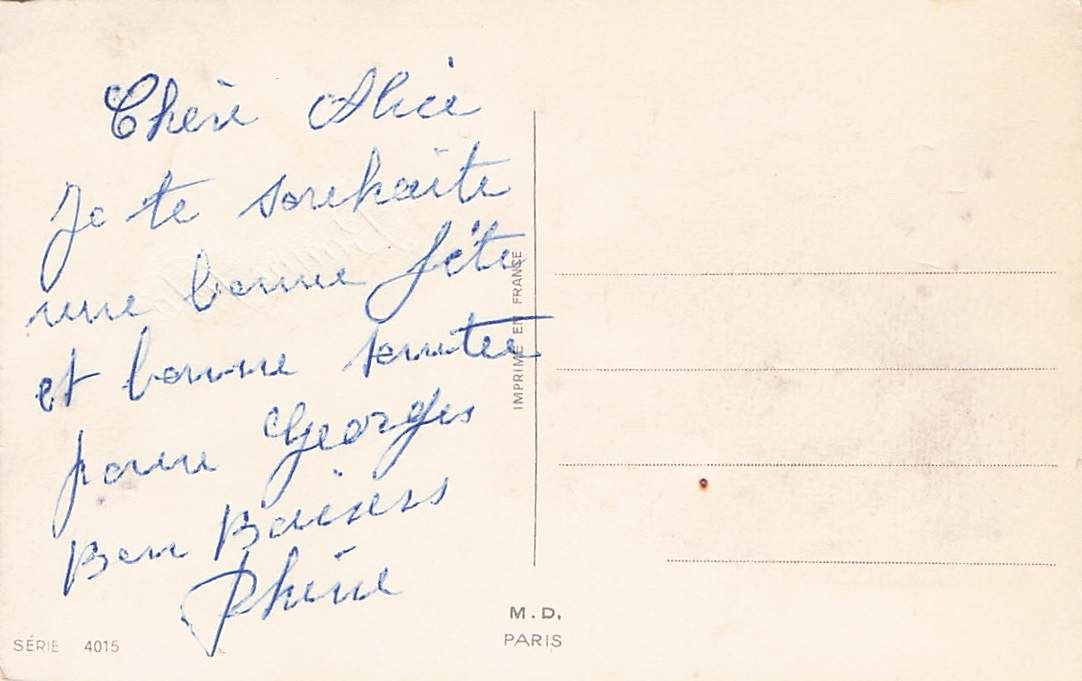 Chère Alice
Je te souhaite
une bonne fête
et bonne santée
pour Georges
Bon Baisers
IMPRIMÉ EN FRANCE
M.D.
PARIS
SÉRIE 4015